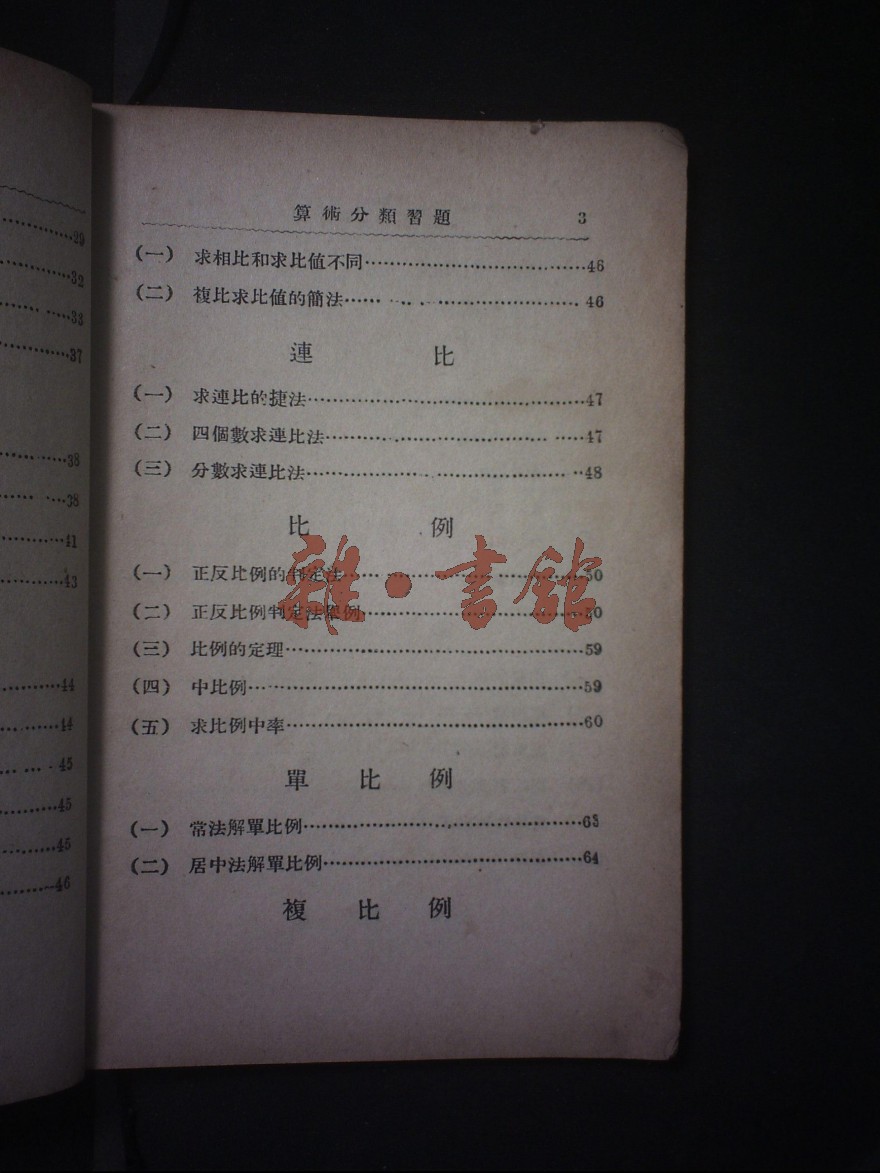 29
32
33
37
38
38
41
43
44
44
45
45
45
46
算術分類習題 3
(一) 求相比和求比值不同……46
(二) 複比求比值的簡法……46
連比
(一) 求連比的捷法……47
(二) 四個數求連比法……47
(三) 分數求連比法……48
比例
(一) 正反比例的判定法……50
(二) 正反比例判定法舉例……50
(三) 比例的定理……59
(四) 中比例……59
(五) 求比例中率……60
單比例
(一) 常法解單比例……63
(二) 居中法解單比例……64
複比例
雜·書館